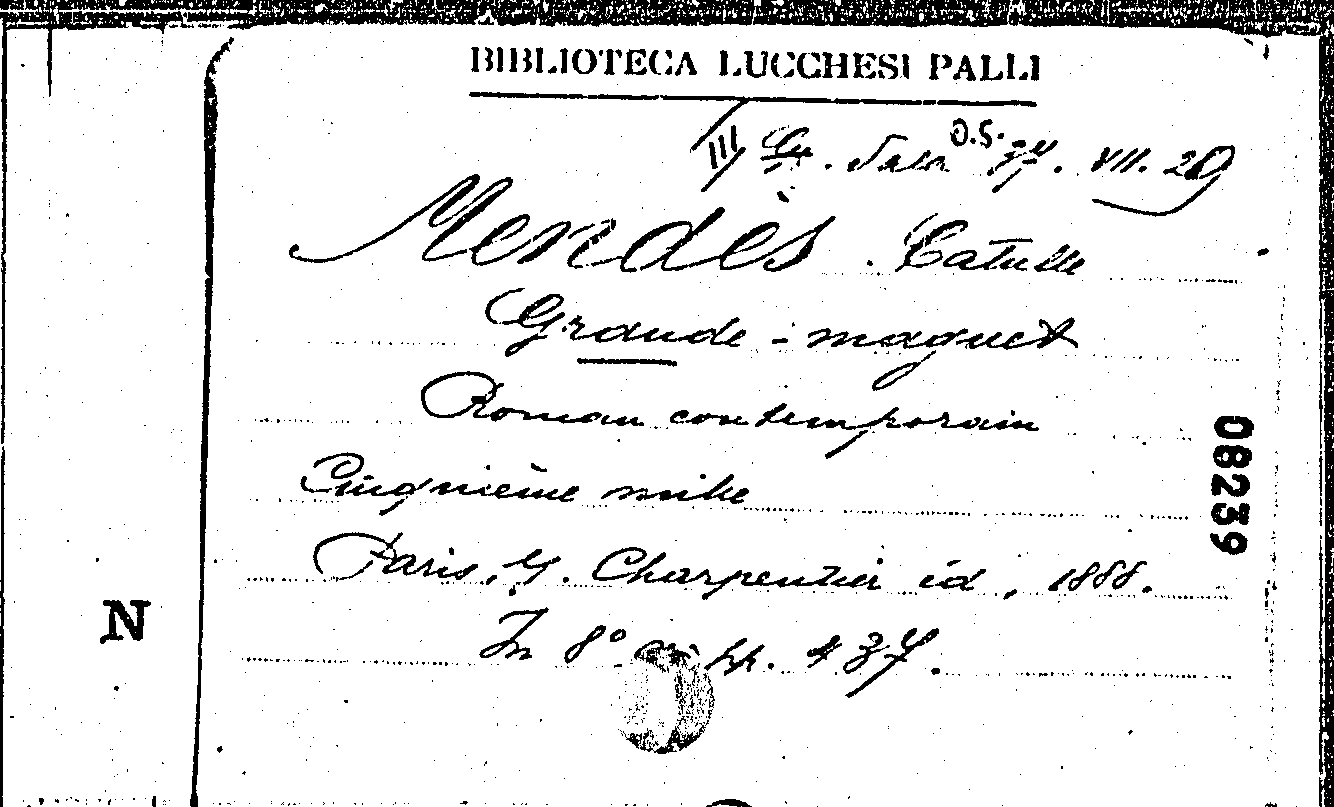 BIBLIOTECA LUCCHESI PALLI
O.S.
III Sala VII. 29
Mendès Catulle
Grande-maguet
Roman contemporain
Cinquième mille
08239
Paris, G. Charpentier éd, 1888.
N
In 8° di pp. 437.